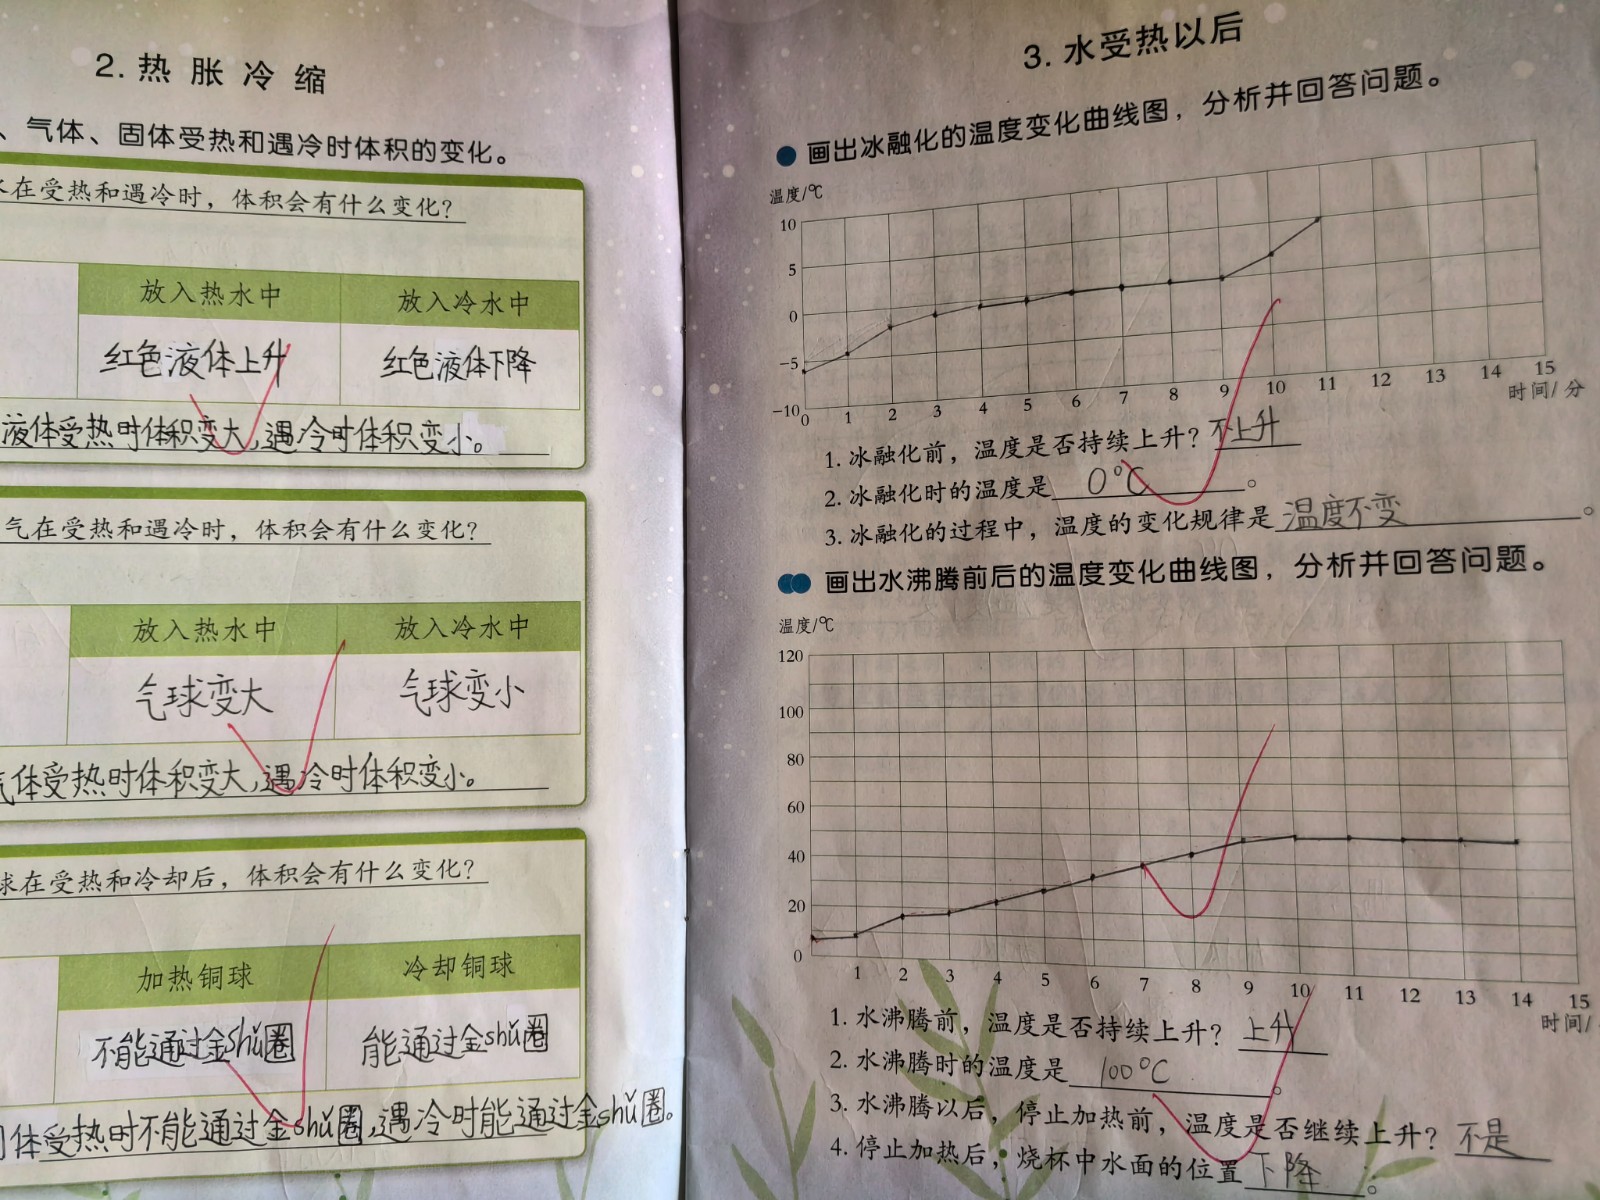 2. 热胀冷缩
、气体、固体受热和遇冷时体积的变化。
在受热和遇冷时，体积会有什么变化？
放入热水中 放入冷水中
红色液体上升 红色液体下降
液体受热时体积变大，遇冷时体积变小。
气在受热和遇冷时，体积会有什么变化？
放入热水中 放入冷水中
气球变大 气球变小
气体受热时体积变大，遇冷时体积变小。
球在受热和冷却后，体积会有什么变化？
加热铜球 冷却铜球
不能通过金shǔ圈 能通过金shǔ圈
体受热时不能通过金shǔ圈，遇冷时能通过金shǔ圈。
3. 水受热以后
画出冰融化的温度变化曲线图，分析并回答问题。
温度/℃
10
5
0
-5
-10
0 1 2 3 4 5 6 7 8 9 10 11 12 13 14 15
时间/分
1. 冰融化前，温度是否持续上升？不上升
2. 冰融化时的温度是 0℃ 。
3. 冰融化的过程中，温度的变化规律是 温度不变 。
画出水沸腾前后的温度变化曲线图，分析并回答问题。
温度/℃
120
100
80
60
40
20
0
1 2 3 4 5 6 7 8 9 10 11 12 13 14 15
时间/
1. 水沸腾前，温度是否持续上升？ 上升
2. 水沸腾时的温度是 100℃ 。
3. 水沸腾以后，停止加热前，温度是否继续上升？ 不是
4. 停止加热后，烧杯中水面的位置 下降 。